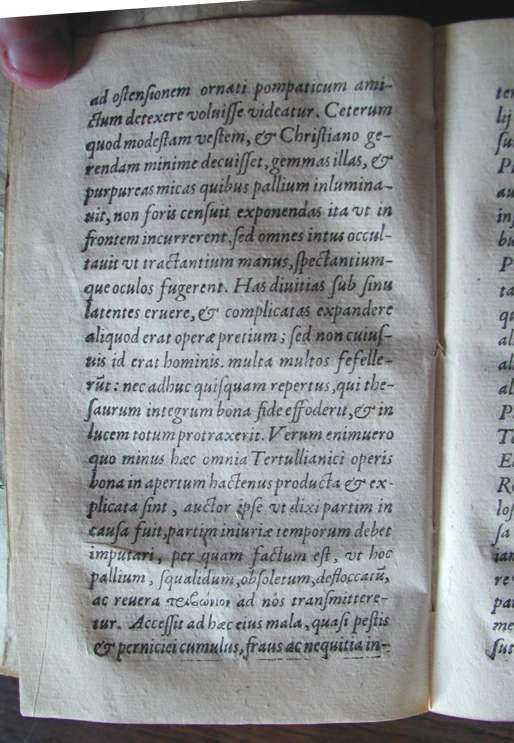 ad oſtenſionem ornati pompaticum ami-
ctum detexere voluiſſe videatur. Ceterum
quod modeſtam veſtem, & Chriſtiano ge-
rendam minime decuiſſet, gemmas illas, &
purpureas micas quibus pallium inlumina-
uit, non foris cenſuit exponendas ita vt in
frontem incurrerent, ſed omnes intus occul-
tauit vt tractantium manus, ſpectantium-
que oculos fugerent. Has diuitias ſub ſinu
latentes eruere, & complicatas expandere
aliquod erat operæ pretium; ſed non cuiuſ-
uis id erat hominis. multa multos fefelle-
rūt: nec adhuc quiſquam repertus, qui the-
ſaurum integrum bona fide effoderit, & in
lucem totum protraxerit. Verum enimuero
quo minus hæc omnia Tertullianici operis
bona in apertum hactenus producta & ex-
plicata ſint, auctor ipſe vt dixi partim in
cauſa fuit, partim iniuriæ temporum debet
imputari, per quam factum eſt, vt hoc
pallium, ſqualidum, obſoletum, defloccatū,
ac reuera τριβώνιον ad nos tranſmittere-
tur. Acceſſit ad hæc eius mala, quaſi peſtis
& perniciei cumulus, fraus ac nequitia in-